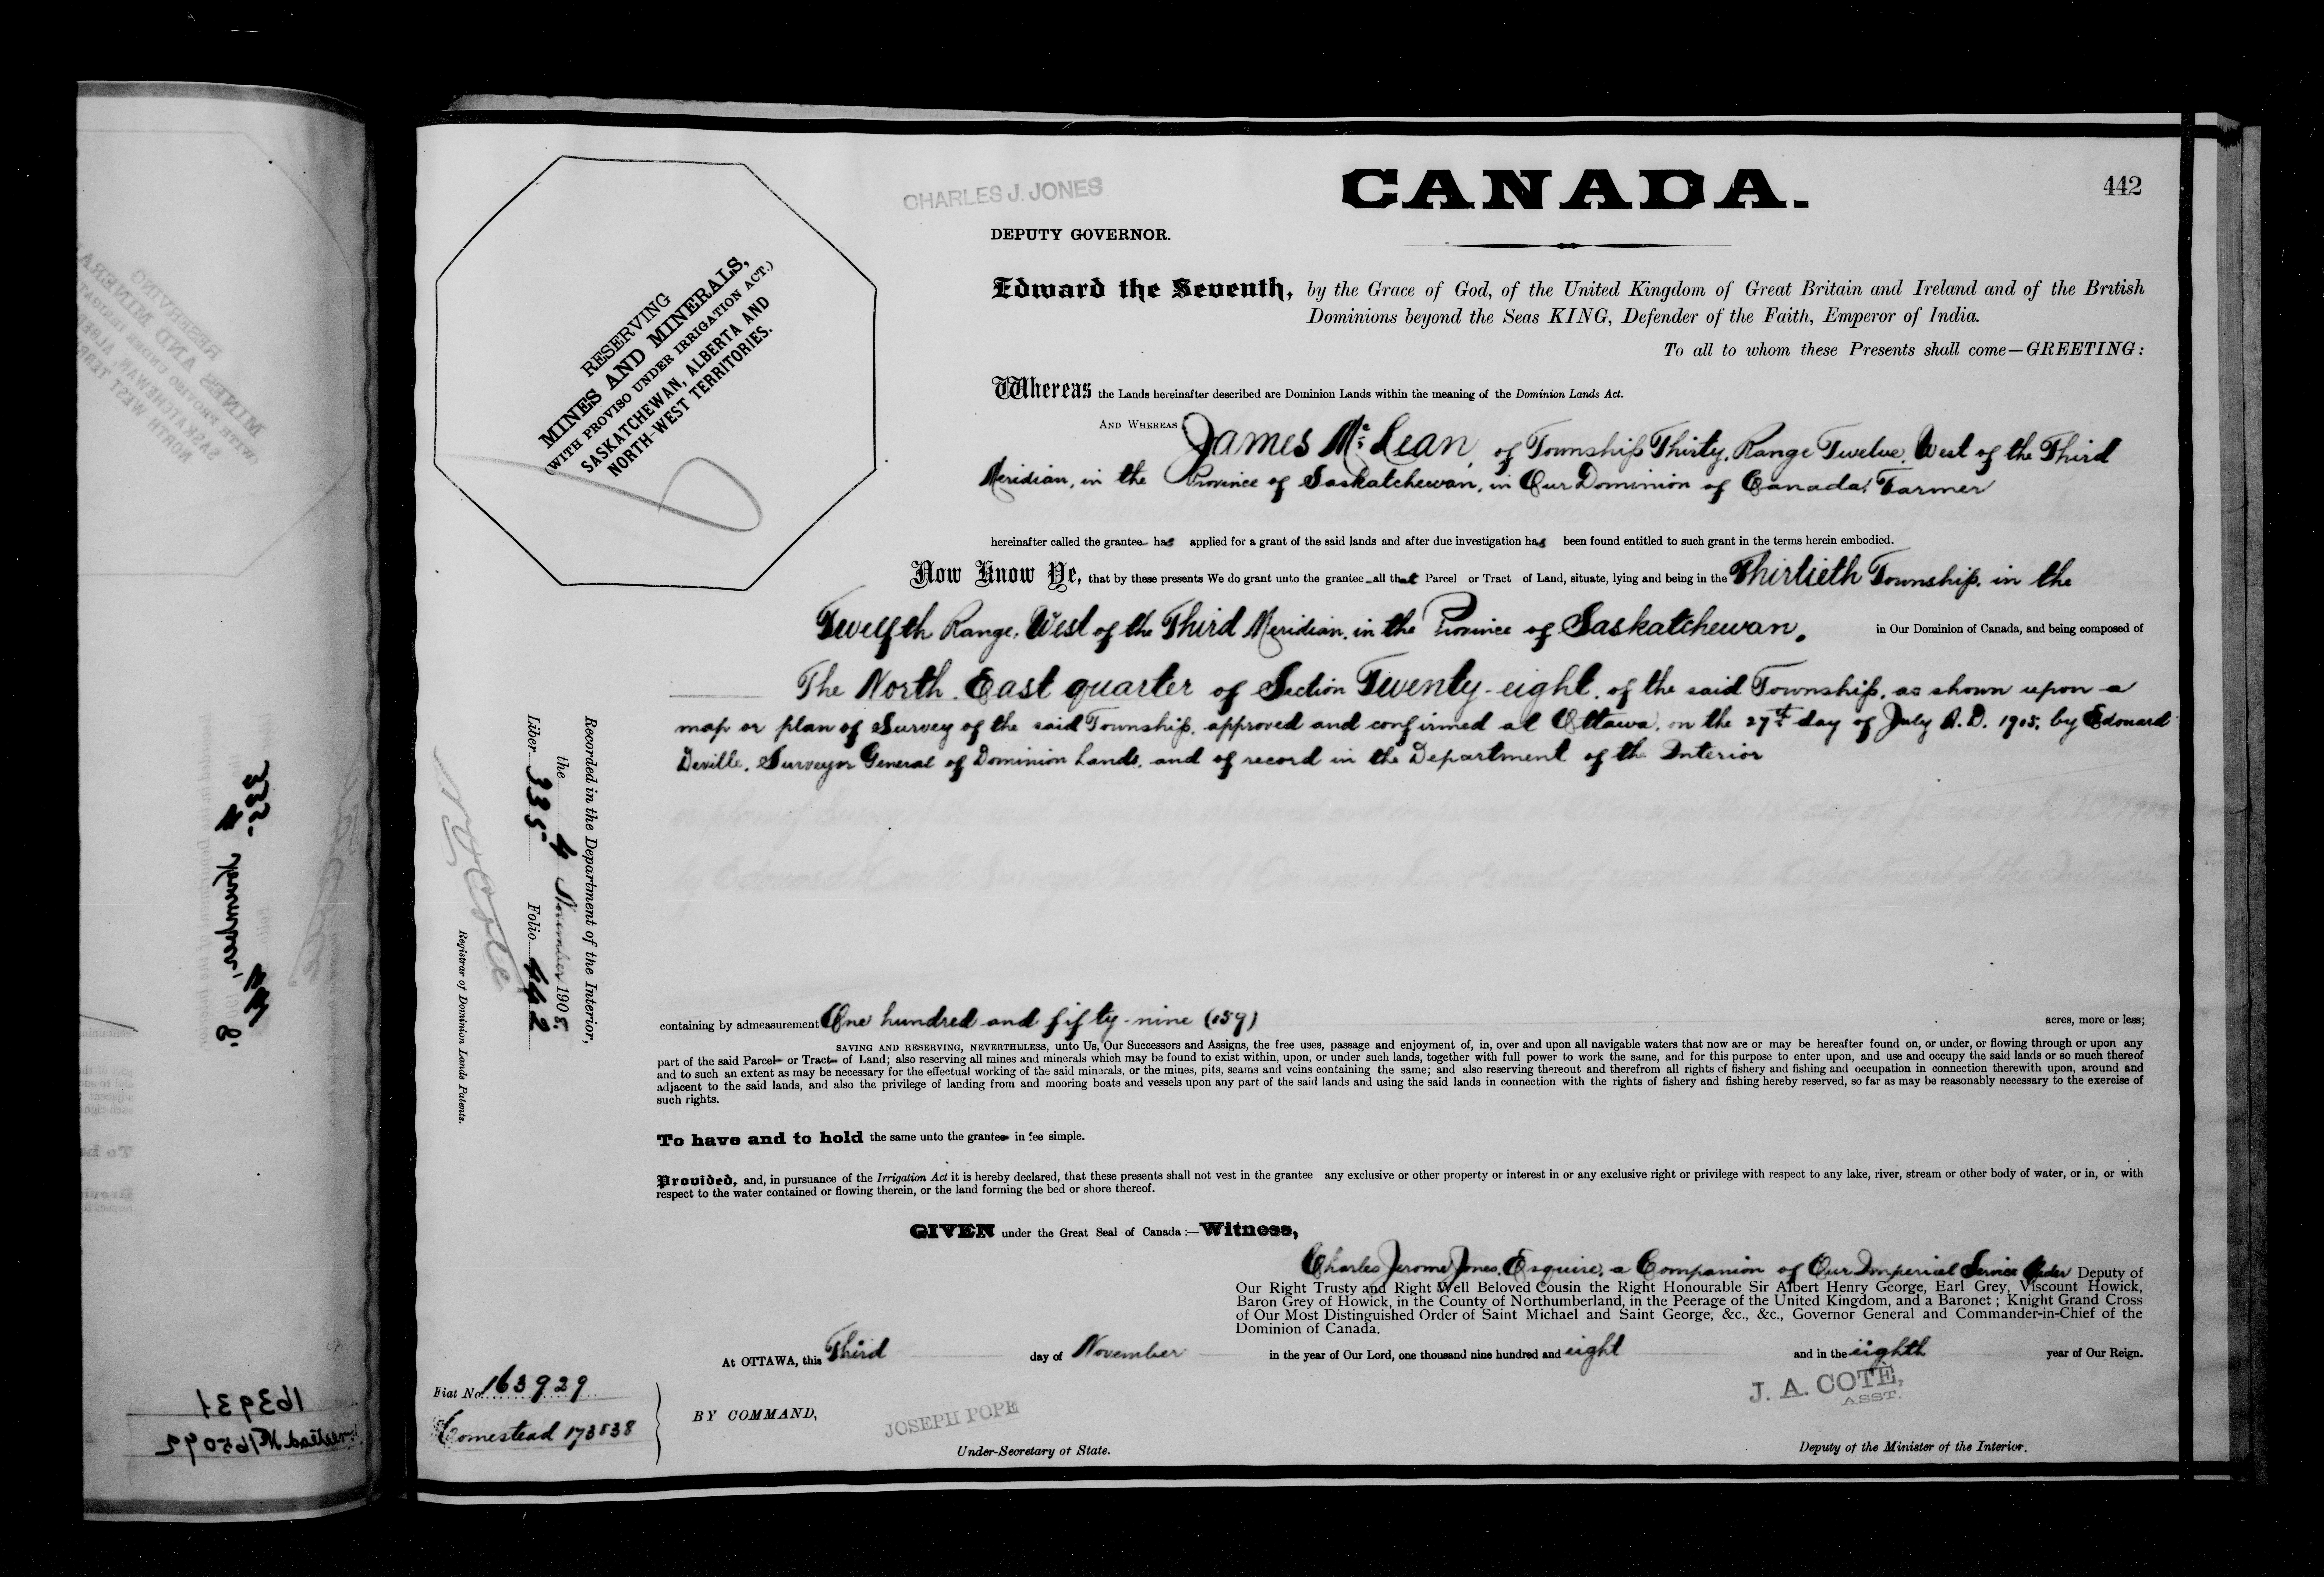 CANADA.
442
CHARLES J. JONES
DEPUTY GOVERNOR.
RESERVING
MINES AND MINERALS,
(WITH PROVISO UNDER IRRIGATION ACT.)
SASKATCHEWAN, ALBERTA AND
NORTH-WEST TERRITORIES.
Edward the Seventh, by the Grace of God, of the United Kingdom of Great Britain and Ireland and of the British
Dominions beyond the Seas KING, Defender of the Faith, Emperor of India.
To all to whom these Presents shall come—GREETING:
Whereas the Lands hereinafter described are Dominion Lands within the meaning of the Dominion Lands Act.
AND WHEREAS James Mc Lean, of Township Thirty, Range Twelve, West of the Third
Meridian, in the Province of Saskatchewan, in Our Dominion of Canada, Farmer
hereinafter called the grantee has applied for a grant of the said lands and after due investigation has been found entitled to such grant in the terms herein embodied.
Now Know Ye, that by these presents We do grant unto the grantee all that Parcel or Tract of Land, situate, lying and being in the Thirtieth Township, in the
Twelfth Range, West of the Third Meridian, in the Province of Saskatchewan, in Our Dominion of Canada, and being composed of
The North East quarter of Section Twenty-eight, of the said Township, as shown upon a
map or plan of Survey of the said Township, approved and confirmed at Ottawa, on the 27th day of July A.D. 1905, by Edouard
Deville, Surveyor General of Dominion Lands, and of record in the Department of the Interior
containing by admeasurement One hundred and fifty-nine (159) acres, more or less;
SAVING AND RESERVING, NEVERTHELESS, unto Us, Our Successors and Assigns, the free uses, passage and enjoyment of, in, over and upon all navigable waters that now are or may be hereafter found on, or under, or flowing through or upon any
part of the said Parcel or Tract of Land; also reserving all mines and minerals which may be found to exist within, upon, or under such lands, together with full power to work the same, and for this purpose to enter upon, and use and occupy the said lands or so much thereof
and to such an extent as may be necessary for the effectual working of the said minerals, or the mines, pits, seams and veins containing the same; and also reserving thereout and therefrom all rights of fishery and fishing and occupation in connection therewith upon, around and
adjacent to the said lands, and also the privilege of landing from and mooring boats and vessels upon any part of the said lands and using the said lands in connection with the rights of fishery and fishing hereby reserved, so far as may be reasonably necessary to the exercise of
such rights.
To have and to hold the same unto the grantee in fee simple.
Provided, and, in pursuance of the Irrigation Act it is hereby declared, that these presents shall not vest in the grantee any exclusive or other property or interest in or any exclusive right or privilege with respect to any lake, river, stream or other body of water, or in, or with
respect to the water contained or flowing therein, or the land forming the bed or shore thereof.
GIVEN under the Great Seal of Canada:—Witness,
Charles Jerome Jones, Esquire, a Companion of Our Imperial Service Order Deputy of
Our Right Trusty and Right Well Beloved Cousin the Right Honourable Sir Albert Henry George, Earl Grey, Viscount Howick,
Baron Grey of Howick, in the County of Northumberland, in the Peerage of the United Kingdom, and a Baronet; Knight Grand Cross
of Our Most Distinguished Order of Saint Michael and Saint George, &c., &c., Governor General and Commander-in-Chief of the
Dominion of Canada.
At OTTAWA, this Third day of November in the year of Our Lord, one thousand nine hundred and eight and in the eighth year of Our Reign.
J. A. COTÉ,
ASST.
Deputy of the Minister of the Interior.
BY COMMAND,
JOSEPH POPE
Under-Secretary of State.
Fiat No. 163929
Homestead 173538
Recorded in the Department of the Interior,
the 4 November 1908.
Liber 335 Folio 442
Registrar of Dominion Lands Patents.
163931